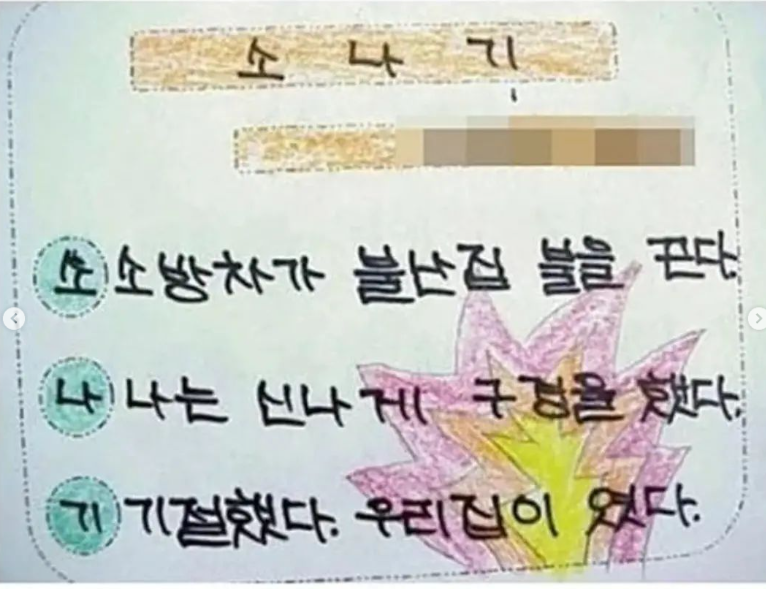 소 나 기
소 소방차가 불난집 불을 끈다.
나 나는 신나게 구경을 했다.
기 기절했다. 우리집이 였다.